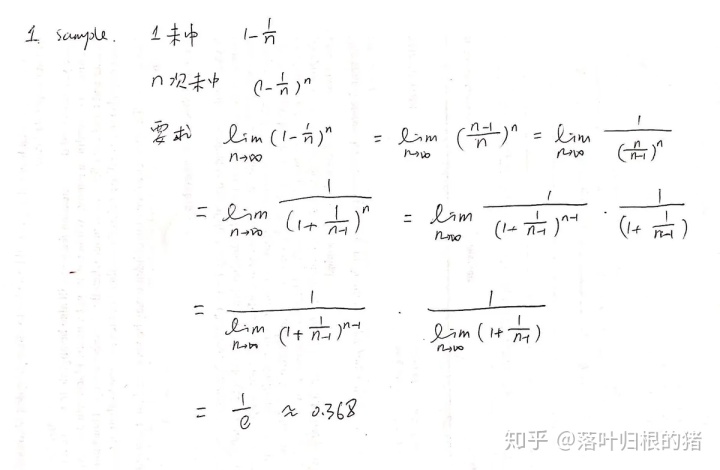 1. sample. 1未中 1-\frac{1}{n}
n次未中 (1-\frac{1}{n})^n
要求 \lim_{n→∞} (1-\frac{1}{n})^n = \lim_{n→∞} (\frac{n-1}{n})^n = \lim_{n→∞} \frac{1}{(\frac{n}{n-1})^n}
= \lim_{n→∞} \frac{1}{(1+\frac{1}{n-1})^n} = \lim_{n→∞} \frac{1}{(1+\frac{1}{n-1})^{n-1}} · \frac{1}{(1+\frac{1}{n-1})}
= \frac{1}{\lim_{n→∞} (1+\frac{1}{n-1})^{n-1}} · \frac{1}{\lim_{n→∞} (1+\frac{1}{n-1})}
= \frac{1}{e} ≈ 0.368
知乎 @落叶归根的猪